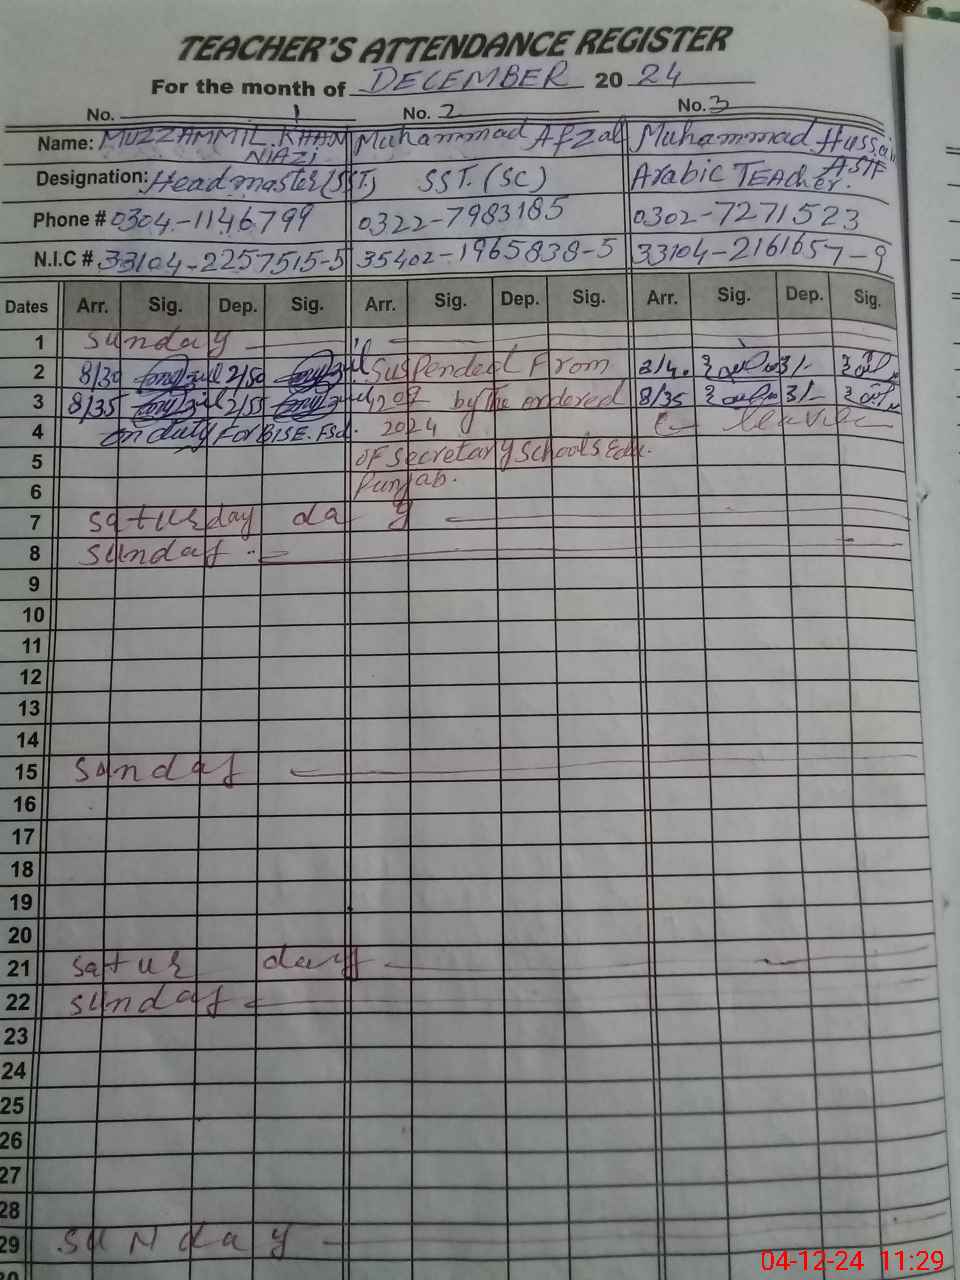 TEACHER'S ATTENDANCE REGISTER
For the month of DECEMBER 20 24
No. 1 No. 2 No. 3
Name: MUZZAMMIL KHAN NIAZI Muhammad Afzal Muhammad Hussain ASIF
Designation: Headmaster (SST) SST. (SC) Arabic TEAcher.
Phone # 0304-1146799 0322-7983185 0302-7271523
N.I.C # 33104-2257515-5 35402-1965838-5 33104-2161657-9
Dates Arr. Sig. Dep. Sig. Arr. Sig. Dep. Sig. Arr. Sig. Dep. Sig.
1 sunday
2 8/30 2/50 Suspended From 3/-
3 8/35 2/55 by The ordered 8/35 3/-
4 on duty For BISE. Fsd. 2024 leave
5 of Secretary Schools Edu.
6 Punjab.
7 saturday da y
8 sunday
9
10
11
12
13
14
15 sunday
16
17
18
19
20
21 satur day
22 sunday
23
24
25
26
27
28
29 suNday
30
04-12-24 11:29